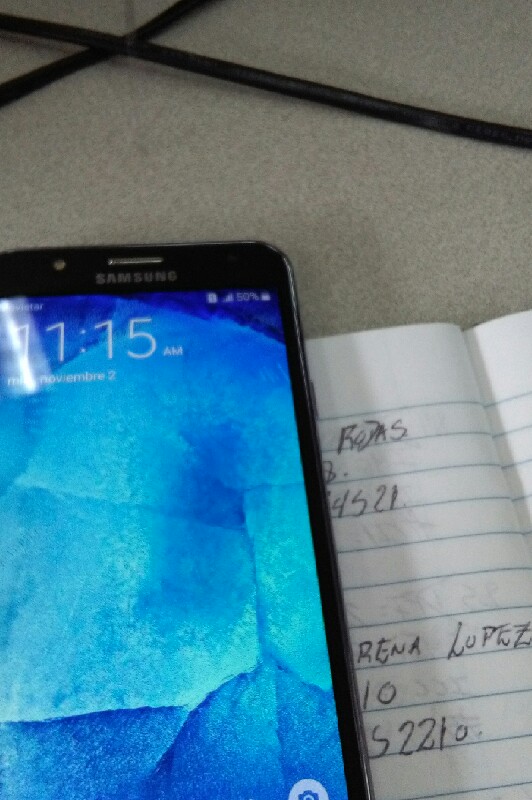 SAMSUNG
50%
11:15 AM
noviembre 2
ROJAS
8.
4521.
RENA LOPEZ
10
52210.